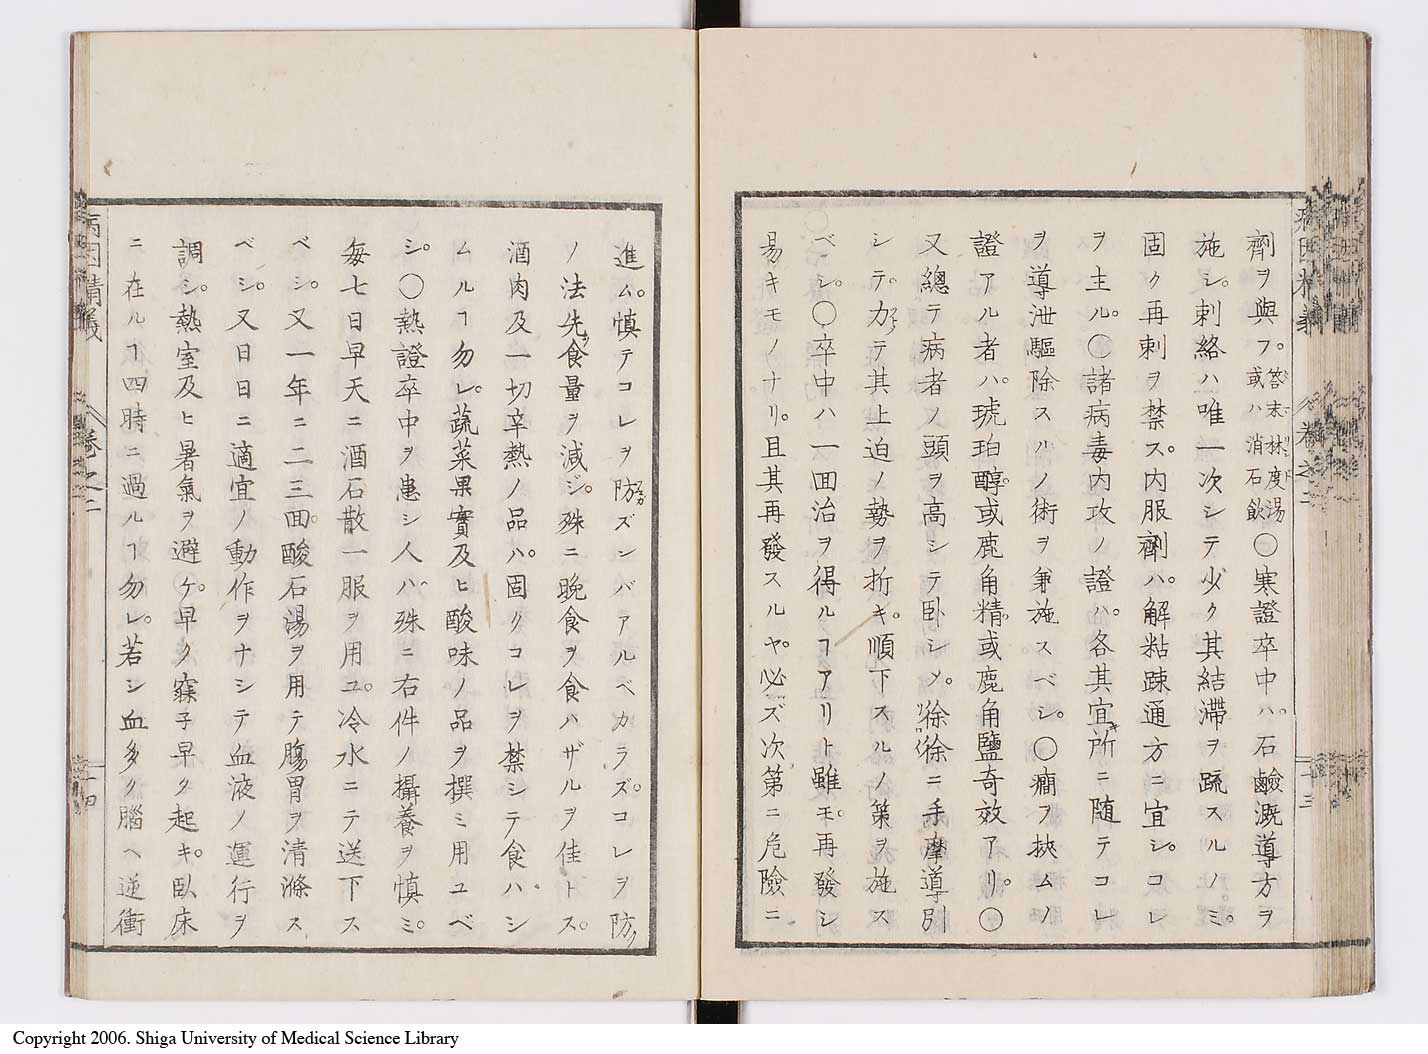 劑ヲ與フ。答末林度湯或ハ消石飲〇寒證卒中ハ。石鹼漑導方ヲ
施シ。刺絡ハ唯一次シテ少ク其結滯ヲ疏スルノミ。
固ク再刺ヲ禁ス。内服劑ハ。解粘疎通方ニ宜シ。コレ
ヲ主ル。〇諸病毒内攻ノ證ハ。各其宜キ所ニ随テコレ
ヲ導泄驅除スルノ術ヲ兼施スベシ。〇癇ヲ挾ムノ
證アル者ハ。琥珀醇。或鹿角精。或鹿角鹽奇效アリ。〇
又總テ病者ノ頭ヲ高シテ卧シメ。徐徐ニ手摩導引
シテ。力テ其上迫ノ勢ヲ折キ。順下スルノ策ヲ施ス
ベシ。〇卒中ハ一囬治ヲ得ルヿアリト雖モ。再發シ
易キモノナリ。且其再發スルヤ。必ズ次第ニ危險ニ
病因精義
卷之二
十三
進ム。慎テコレヲ防ズンバアルベカラズ。コレヲ防ク
ノ法先ツ食量ヲ減ジ。殊ニ晩食ヲ食ハザルヲ佳トス。
酒肉及一切辛熱ノ品ハ。固リコレヲ禁シテ食ハシ
ムルヿ勿レ。蔬菜果實及ヒ酸味ノ品ヲ撰ミ用ユベ
シ。〇熱證卒中ヲ患シ人ハ殊ニ右件ノ攝養ヲ慎ミ。
毎七日早天ニ酒石散一服ヲ用ユ。冷水ニテ送下ス
ベシ。又一年ニ二三囬。酸石湯ヲ用テ腸胃ヲ清滌ス
ベシ。又日日ニ適宜ノ動作ヲナシテ血液ノ運行ヲ
調シ。熱室及ヒ暑氣ヲ避ケ。早ク寐子早ク起キ。臥床
ニ在ルヿ四時ニ過ルヿ勿レ。若シ血多ク腦ヘ逆衝
病因精義
卷之二
十四
Copyright 2006. Shiga University of Medical Science Library